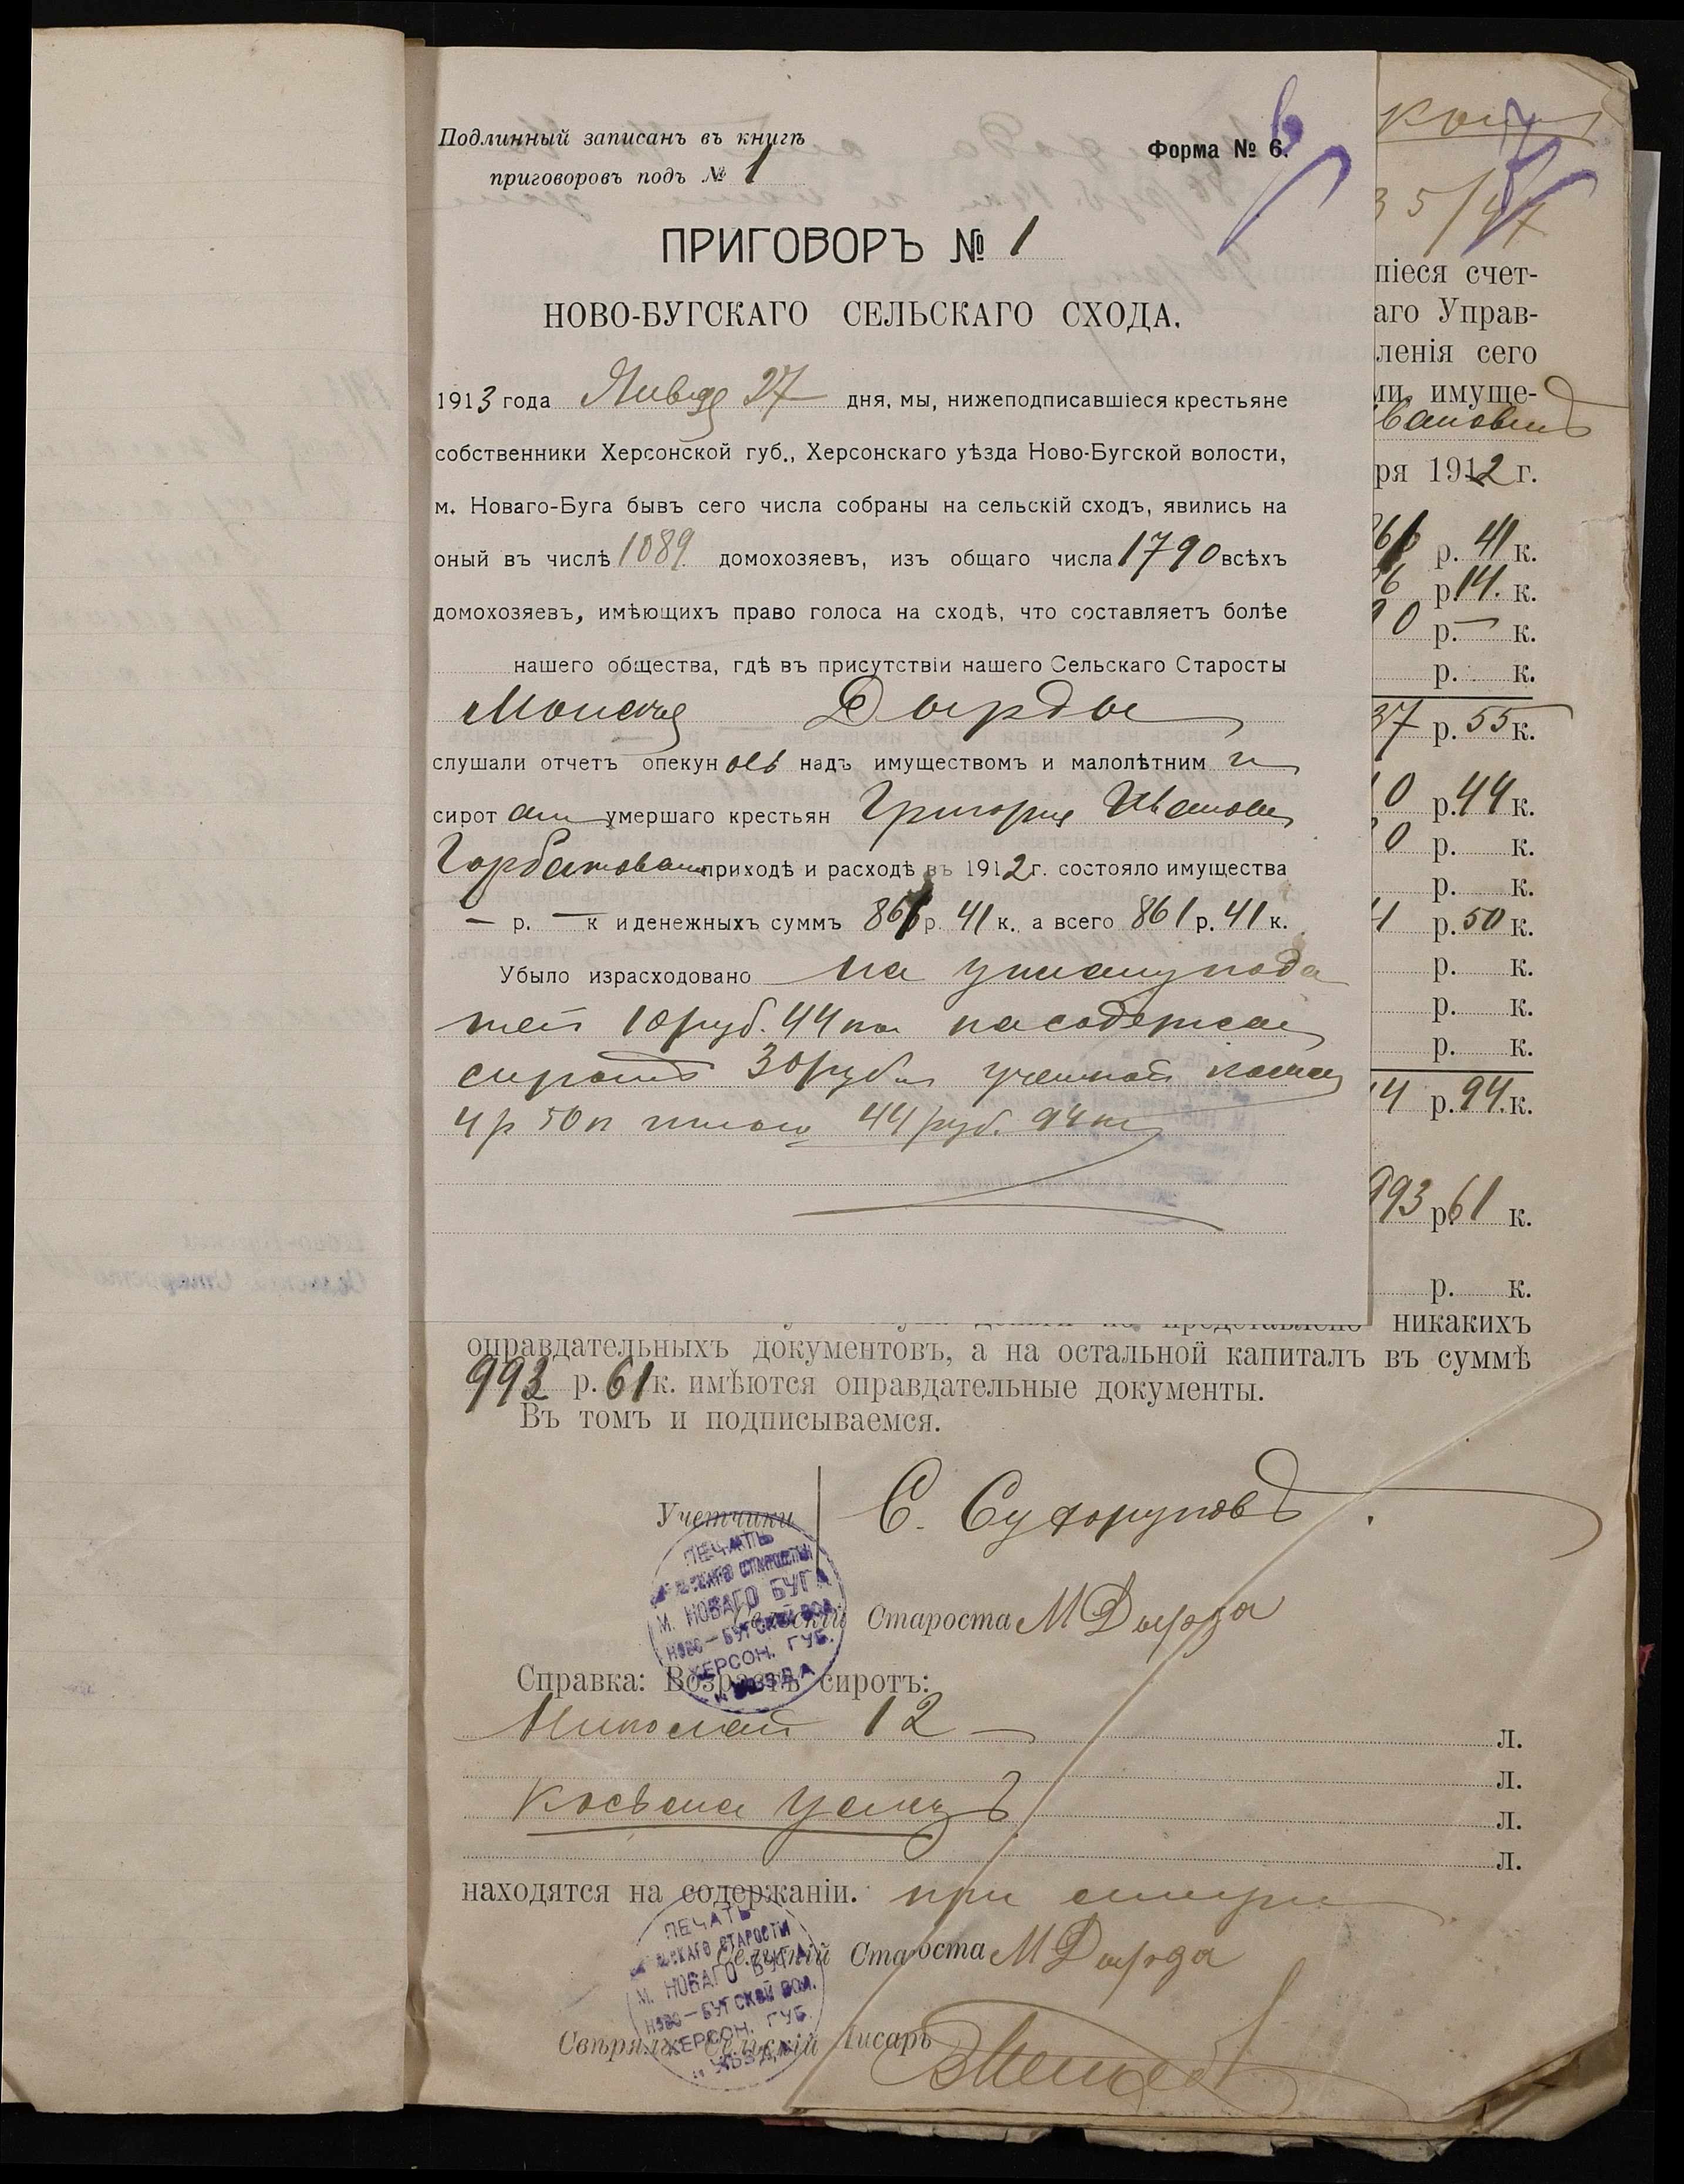 Подлинный записанъ въ книгѣ
приговоровъ подъ № 1
Форма № 6.
6
ПРИГОВОРЪ № 1
НОВО-БУГСКАГО СЕЛЬСКАГО СХОДА.
1913 года Января 27 дня, мы, нижеподписавшіеся крестьяне
собственники Херсонской губ., Херсонскаго уѣзда Ново-Бугской волости,
м. Новаго-Буга бывъ сего числа собраны на сельскій сходъ, явились на
оный въ числѣ 1089 домохозяевъ, изъ общаго числа 1790 всѣхъ
домохозяевъ, имѣющихъ право голоса на сходѣ, что составляетъ болѣе
нашего общества, гдѣ въ присутствіи нашего Сельскаго Старосты
Моисея Дырды
слушали отчетъ опекуновъ надъ имуществомъ и малолѣтним и
сирот ами умершаго крестьян Григорія Иванова
Горбатова приходѣ и расходѣ въ 1912 г. состояло имущества
— р. — к и денежныхъ суммъ 861 р. 41 к., а всего 861 р. 41 к.
Убыло израсходовано на уплату пода
тей 10 руб. 44 коп на содержан
сиротъ 30 рубл
4 р 50 к итого 44 руб. 94 к
7
35/47
шіеся счет-
аго Управ-
ленія сего
ми, имуще-
вановыхъ
ря 1912 г.
61 р. 41 к.
6 р 14. к.
90 р. — к.
р. к.
37 р. 55 к.
10 р. 44 к.
30 р. к.
р. к.
4 р. 50 к.
р. к.
р. к.
р. к.
44 р. 94. к.
993 р. 61 к.
р. к.
представлено никакихъ
оправдательныхъ документовъ, а на остальной капиталъ въ суммѣ
993 р. 61 к. имѣются оправдательные документы.
Въ томъ и подписываемся.
Учетчики С.
ПЕЧАТЬ
СЕЛЬСКАГО СТАРОСТЫ
М. НОВАГО БУГА
НОВО-БУГСКОЙ ВОЛ.
ХЕРСОН. ГУБ.
„ УѢЗДА
Сельскій Староста М Дырда
Справка: Возрастъ сиротъ:
Николай 12 л.
л.
л.
л.
находятся на содержаніи. при
ПЕЧАТЬ
СЕЛЬСКАГО СТАРОСТЫ
М. НОВАГО БУГА
НОВО-БУГСКОЙ ВОЛ.
ХЕРСОН. ГУБ.
„ УѢЗДА
Сельскій Староста М Дырда
Свѣрялъ: Сельскій Писарь